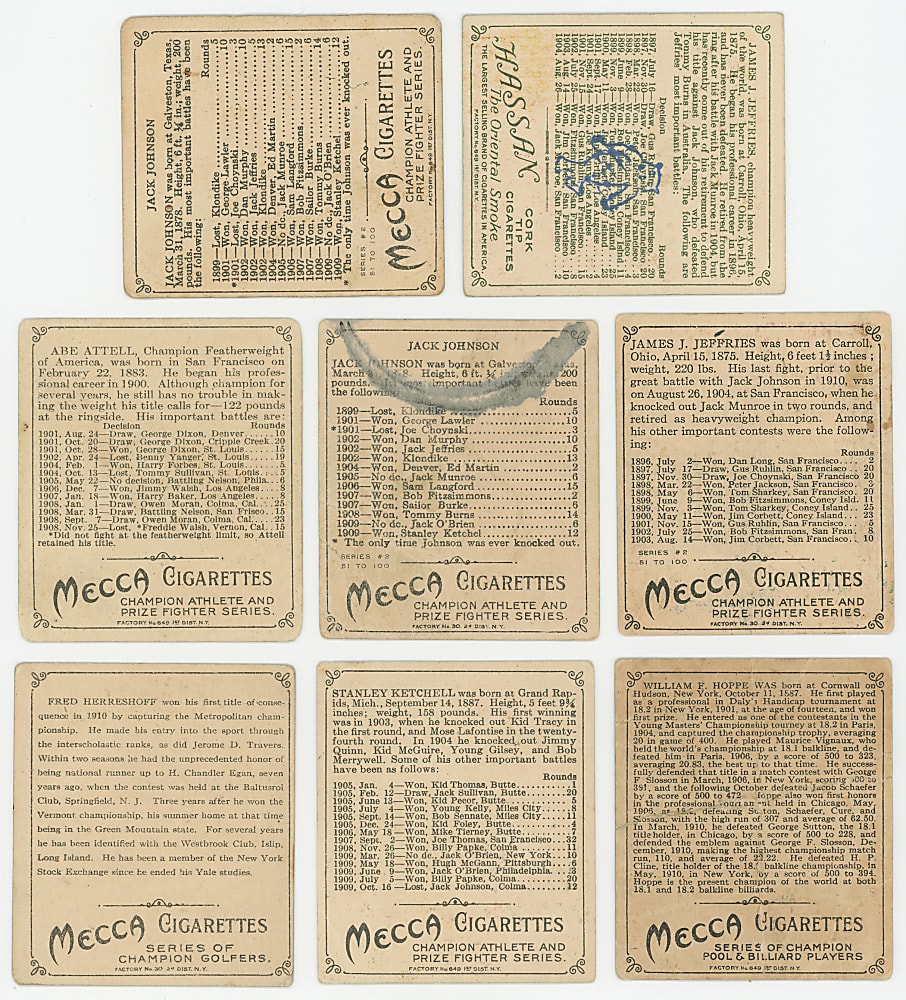 JACK JOHNSON
JACK JOHNSON was born at Galveston, Texas,
March 31, 1878. Height, 6 ft. ¾ in.; weight 200
pounds. His most important battles have been
the following:
Rounds
1899—Lost, Klondike 5
1901—Won, George Lawler 10
*1901—Lost, Joe Choynski 3
1902—Won, Dan Murphy 10
1902—Won, Jack Jeffries 5
1902—Won, Klondike 13
1904—Won, Denver, Ed Martin 2
1905—No dc., Jack Munroe 6
1906—Won, Sam Langford 15
1907—Won, Bob Fitzsimmons 2
1907—Won, Sailor Burke 6
1908—Won, Tommy Burns 14
1909—No dc., Jack O'Brien 6
1909—Won, Stanley Ketchel 12
* The only time Johnson was ever knocked out.
SERIES #2
51 TO 100
MECCA CIGARETTES
CHAMPION ATHLETE AND
PRIZE FIGHTER SERIES.
JAMES J. JEFFRIES, champion heavyweight
of the world, was born at Carroll, Ohio, April 15,
1875. He began his professional career in 1896,
and has never been defeated. He retired from the
ring after his battle with Jack Munroe in 1904, but
has recently come out of his retirement to defend
his title against Jack Johnson, who defeated
Tommy Burns in Australia. The following are
Jeffries' most important battles:
Decision Rounds
1897, July 16—Draw, Gus Ruhlin, San Francisco 20
1897, Nov. 30—Draw, Joe Choynski, San Francisco 20
1898, Mar. 22—Won, Peter Jackson, San Francisco 3
HASSAN
CORK
TIP
CIGARETTES
The Oriental Smoke
THE LARGEST SELLING BRAND OF CIGARETTES IN AMERICA.
FACTORY No. 649 1ST DIST. N.Y.
ABE ATTELL, Champion Featherweight
of America, was born in San Francisco on
February 22, 1883. He began his profes-
sional career in 1900. Although champion for
several years, he still has no trouble in mak-
ing the weight his title calls for—122 pounds
at the ringside. His important battles are:
Decision Rounds
1901, Aug. 24—Draw, George Dixon, Denver 10
1901, Oct. 20—Draw, George Dixon, Cripple Creek 20
1901, Oct. 28—Won, George Dixon, St. Louis 15
1902, Apr. 24—Lost, Benny Yanger, St. Louis 19
1904, Feb. 1—Won, Harry Forbes, St. Louis 5
1904, Oct. 13—Lost, Tommy Sullivan, St. Louis 5
1905, May 22—No decision, Battling Nelson, Phila. 6
1906, Dec. 7—Won, Jimmy Walsh, Los Angeles 8
1907, Jan. 18—Won, Harry Baker, Los Angeles 8
1908, Jan. 1—Draw, Owen Moran, Colma, Cal. 25
1908, Mar. 31—Draw, Battling Nelson, San Frisco 15
1908, Sept. 7—Draw, Owen Moran, Colma, Cal. 23
1908, Nov. 25—Lost, *Freddie Walsh, Vernon, Cal. 15
*Did not fight at the featherweight limit, so Attell
retained his title.
MECCA CIGARETTES
CHAMPION ATHLETE AND
PRIZE FIGHTER SERIES.
FACTORY No 649 1ST DIST. N.Y.
JACK JOHNSON
JACK JOHNSON was born at Galveston, Texas,
March Height, 6 ft. ¾ in. 200
pounds. most important battles have been
the following
Rounds
1899—Lost, Klondike 5
1901—Won, George Lawler 10
*1901—Lost, Joe Choynski 3
1902—Won, Dan Murphy 10
1902—Won, Jack Jeffries 5
1902—Won, Klondike 13
1904—Won, Denver, Ed Martin 2
1905—No dc., Jack Munroe 6
1906—Won, Sam Langford 15
1907—Won, Bob Fitzsimmons 2
1907—Won, Sailor Burke 6
1908—Won, Tommy Burns 14
1909—No dc., Jack O'Brien 6
1909—Won, Stanley Ketchel 12
* The only time Johnson was ever knocked out.
SERIES #2
51 TO 100
MECCA CIGARETTES
CHAMPION ATHLETE AND
PRIZE FIGHTER SERIES.
FACTORY No. 30. 2d DIST. N.Y.
JAMES J. JEFFRIES was born at Carroll,
Ohio, April 15, 1875. Height, 6 feet 1½ inches;
weight, 220 lbs. His last fight, prior to the
great battle with Jack Johnson in 1910, was
on August 26, 1904, at San Francisco, when he
knocked out Jack Munroe in two rounds, and
retired as heavyweight champion. Among
his other important contests were the follow-
ing:
Rounds
1896, July 2—Won, Dan Long, San Francisco 2
1897, July 17—Draw, Gus Ruhlin, San Francisco 20
1897, Nov. 30—Draw, Joe Choynski, San Francisco 20
1898, Mar. 22—Won, Peter Jackson, San Francisco 3
1898, May 6—Won, Tom Sharkey, San Francisco 20
1899, June 9—Won, Bob Fitzsimmons, Coney Isld. 11
1899, Nov. 3—Won, Tom Sharkey, Coney Island 25
1900, May 11—Won, Jim Corbett, Coney Island 23
1901, Nov. 15—Won, Gus Ruhlin, San Francisco 5
1902, July 25—Won, Bob Fitzsimmons, San Fran. 8
1903, Aug. 14—Won, Jim Corbett, San Francisco 10
SERIES #2
51 TO 100
MECCA CIGARETTES
CHAMPION ATHLETE AND
PRIZE FIGHTER SERIES.
FACTORY No. 30. 2d DIST. N.Y.
FRED HERRESHOFF won his first title of conse-
quence in 1910 by capturing the Metropolitan cham-
pionship. He made his entry into the sport through
the interscholastic ranks, as did Jerome D. Travers.
Within two seasons he had the unprecedented honor of
being national runner up to H. Chandler Egan, seven
years ago, when the contest was held at the Baltusrol
Club, Springfield, N. J. Three years after he won the
Vermont championship, his summer home at that time
being in the Green Mountain state. For several years
he has been identified with the Westbrook Club, Islip,
Long Island. He has been a member of the New York
Stock Exchange since he ended his Yale studies.
MECCA CIGARETTES
SERIES OF
CHAMPION GOLFERS.
FACTORY No. 30 2d DIST. N.Y.
STANLEY KETCHELL was born at Grand Rap-
ids, Mich., September 14, 1887. Height, 5 feet 9¾
inches; weight, 158 pounds. His first winning
was in 1903, when he knocked out Kid Tracy in
the first round, and Mose Lafontise in the twenty-
fourth round. In 1904 he knocked out Jimmy
Quinn, Kid McGuire, Young Gilsey, and Bob
Merrywell. Some of his other important battles
have been as follows:
Rounds
1905, Jan. 4—Won, Kid Thomas, Butte 1
1905, Feb. 12—Draw, Jack Sullivan, Butte 20
1905, June 13—Won, Kid Pecor, Butte 5
1905, July 4—Won, Young Kelly, Miles City 8
1905, Sept. 14—Won, Bob Sennate, Miles City 11
1905, Dec. 24—Won, Kid Foley, Butte 1
1906, May 18—Won, Mike Tierney, Butte 7
1907, Sept. 2—Won, Joe Thomas, San Francisco 32
1908, Nov. 26—Won, Billy Papke, Colma 11
1909, Mar. 26—No dc., Jack O'Brien, New York 10
1909, May 18—Won, Hugh McGann, Pittsburgh 6
1909, June 9—Won, Jack O'Brien, Philadelphia 3
1909, July 5—Won, Billy Papke, Colma 20
1909, Oct. 16—Lost, Jack Johnson, Colma 12
MECCA CIGARETTES
CHAMPION ATHLETE AND
PRIZE FIGHTER SERIES.
FACTORY No 649 1ST DIST. N.Y.
WILLIAM F. HOPPE WAS born at Cornwall on
Hudson, New York, October 11, 1887. He first played
as a professional in Daly's Handicap tournament at
18.2 in New York, 1901, at the age of fourteen, and won
first prize. He entered as one of the contestants in the
Young Masters' Championship tourney at 18.2 in Paris,
1904, and captured the championship trophy, averaging
20 in game of 400. He played Maurice Vignaux, who
held the world's championship at 18.1 balkline, and de-
feated him in Paris, 1906, by a score of 500 to 323,
averaging 20.83, the best up to that time. He success-
fully defended that title in a match contest with George
F Slosson in March, 1906, in New York, scoring 500 to
391, and the following October defeated Jacob Schaefer
by a score of 500 to 472 Hoppe also won first honors
in the professional tournament held in Chicago, May,
1906, at 18.2, defeating Sutton, Schaefer, Cure, and
Slosson, with the high run of 307 and average of 62.50.
In March, 1910, he defeated George Sutton, the 18.1
title holder, in Chicago, by a score of 500 to 228, and
defended the emblem against George F. Slosson, De-
cember, 1910, making the highest championship match
run, 110, and average of 22.22. He defeated H. P.
Cline, title holder of the 18.2 balkline championship, in
May, 1910, in New York, by a score of 500 to 394.
Hoppe is the present champion of the world at both
18.1 and 18.2 balkline billiards.
MECCA CIGARETTES
SERIES OF CHAMPION
POOL & BILLIARD PLAYERS
FACTORY No 649 1ST DIST. N.Y.